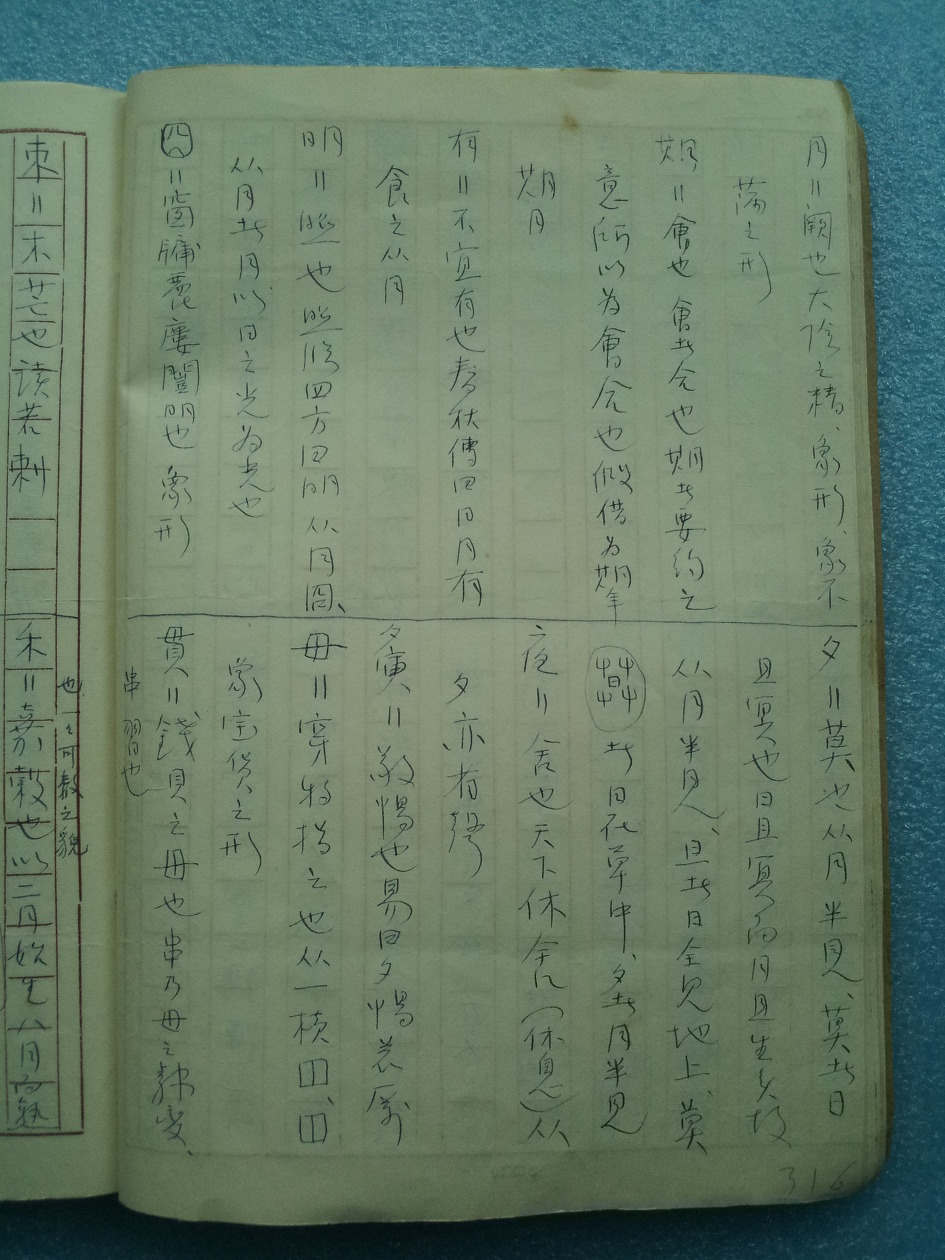 月〓闕也大陰之精、象形、象不
滿之形
期〓會也會者合也期者要約之
意所以为會合也假借为期年
朞月
有〓不宜有也春秋傳曰日月有
食之从月
明〓照也照臨四方曰明从月囧、
从月者月以日之光为光也
囧〓窗牖麗廔闓明也象形
夕〓莫也从月半見、莫者日
且冥也日且冥而月且生矣故
从月半見、旦者日全見地上、莫
者日在茻中、夕者月半見
夜〓舍也天下休舍(休息)从
夕亦省聲
夤〓敬惕也易曰夕惕若厲
毌〓穿物持之也从一橫
象宝货之形
貫〓錢貝之毌也串乃毌之隸變、
串習也
316
也一之可數之貌
朿〓木芒也讀若刺
禾〓嘉穀也以二月始生八月而孰